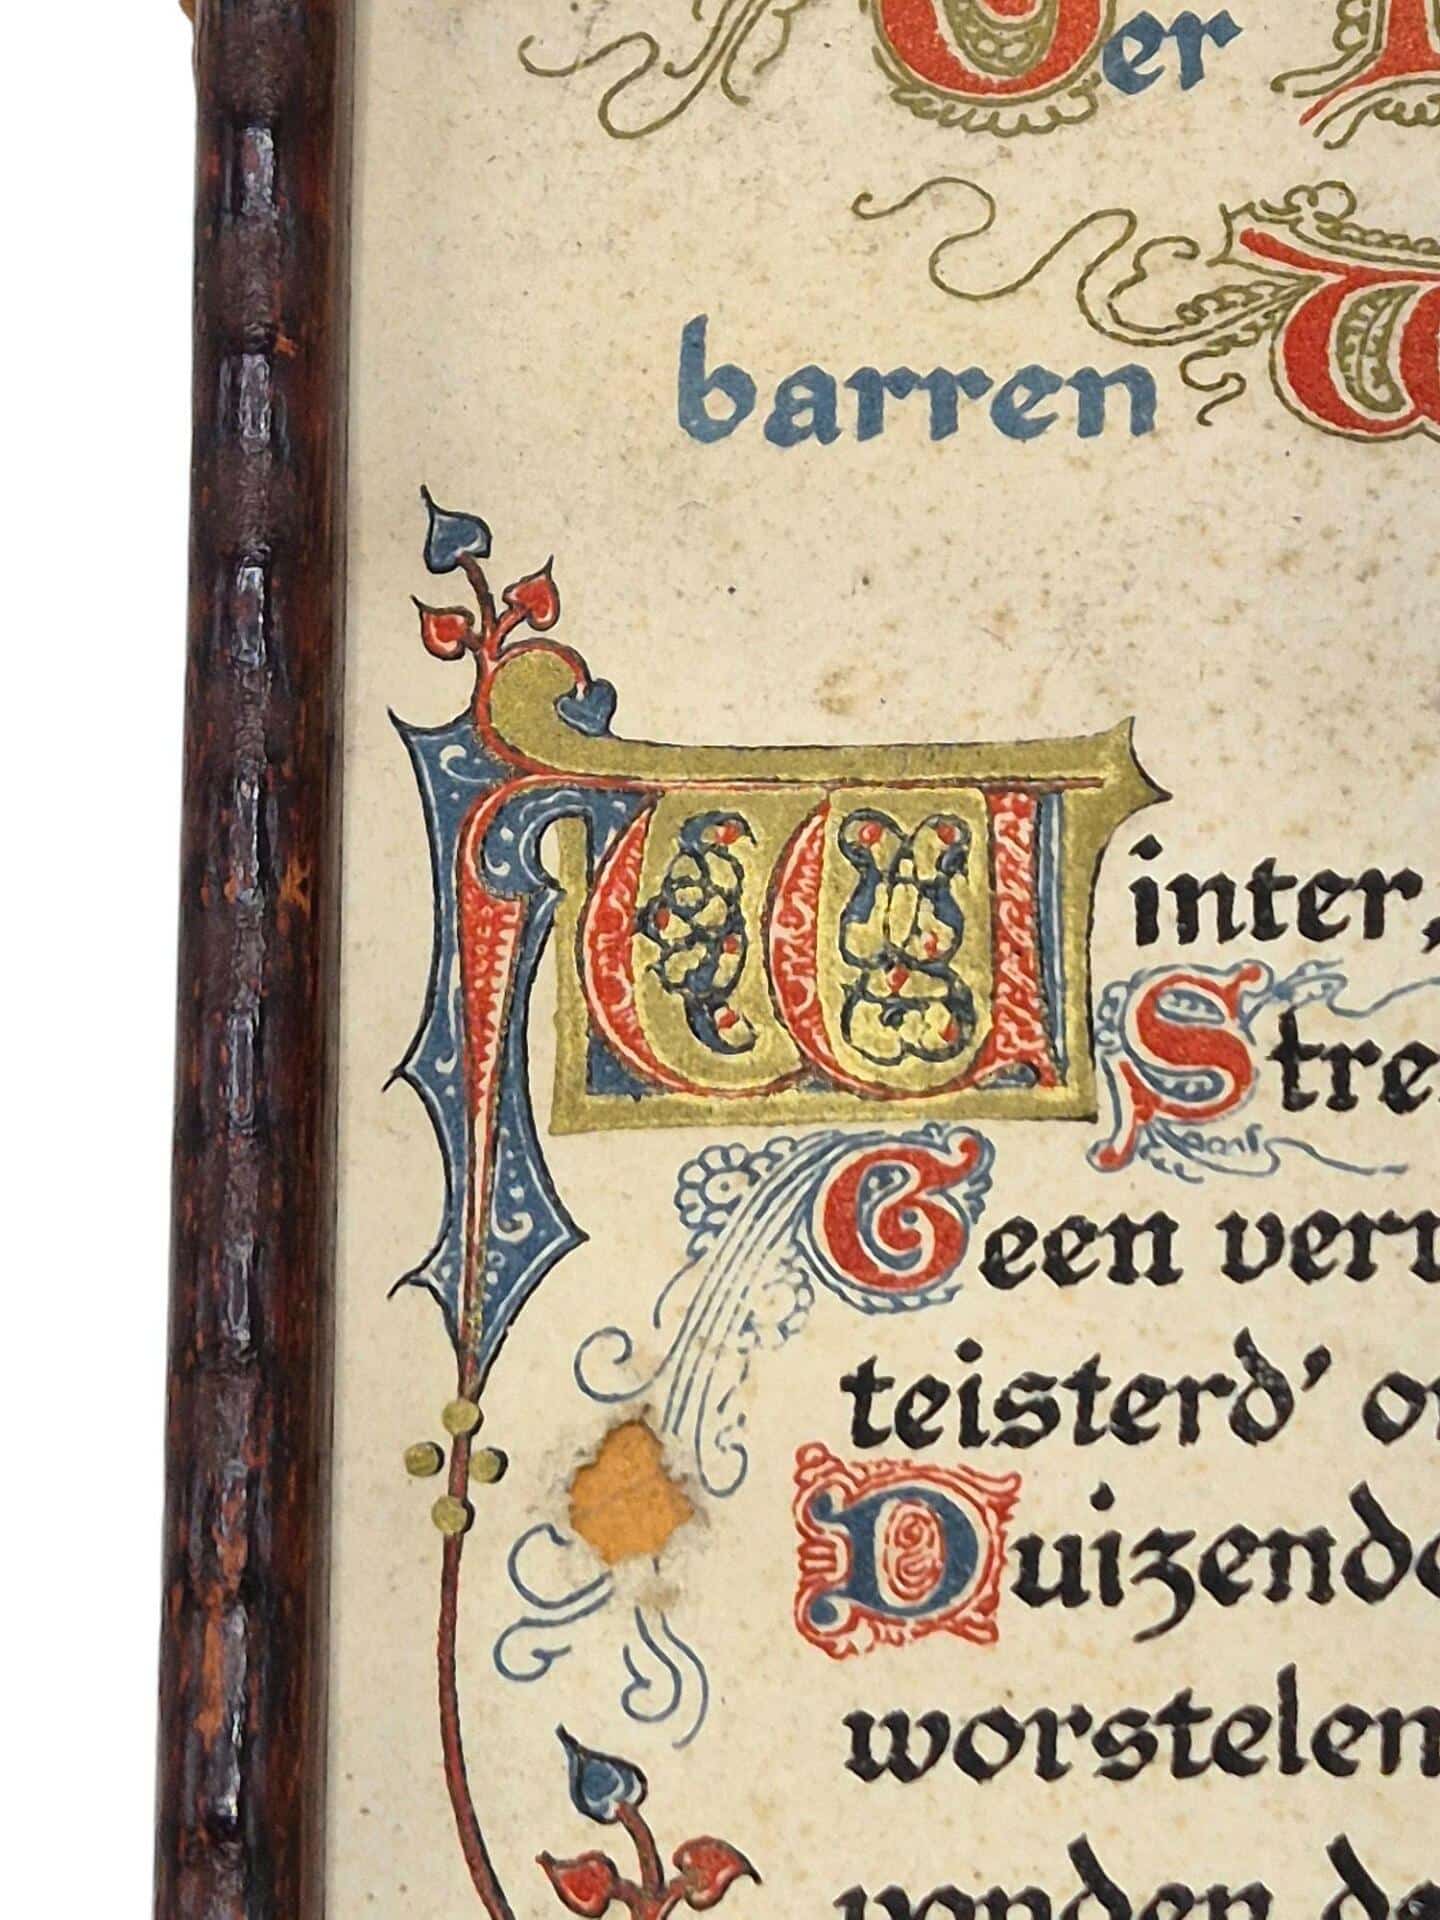 er
barren W
Winter,
Stre
Geen ver
teisterd' o
Duizend
worstelen